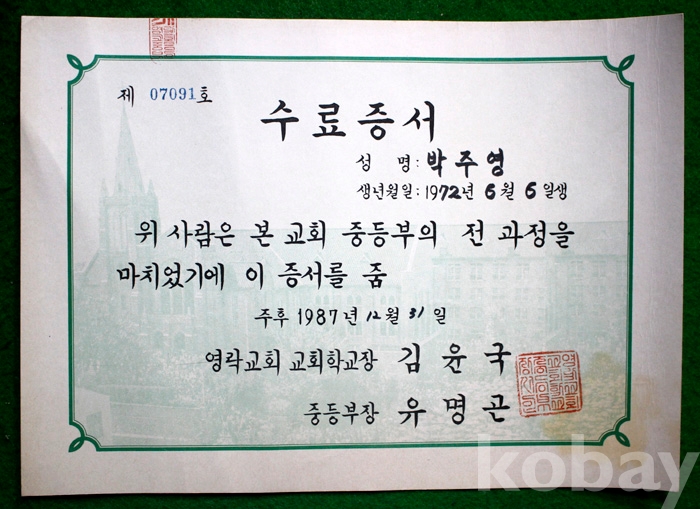 제 07091호
수료증서
성 명: 박주영
생년월일: 1972년 6월 6일생
위 사람은 본 교회 중등부의 전 과정을
마치었기에 이 증서를 줌
주후 1987년 12월 31일
영락교회 교회학교장 김윤국
중등부장 유명근
kobay